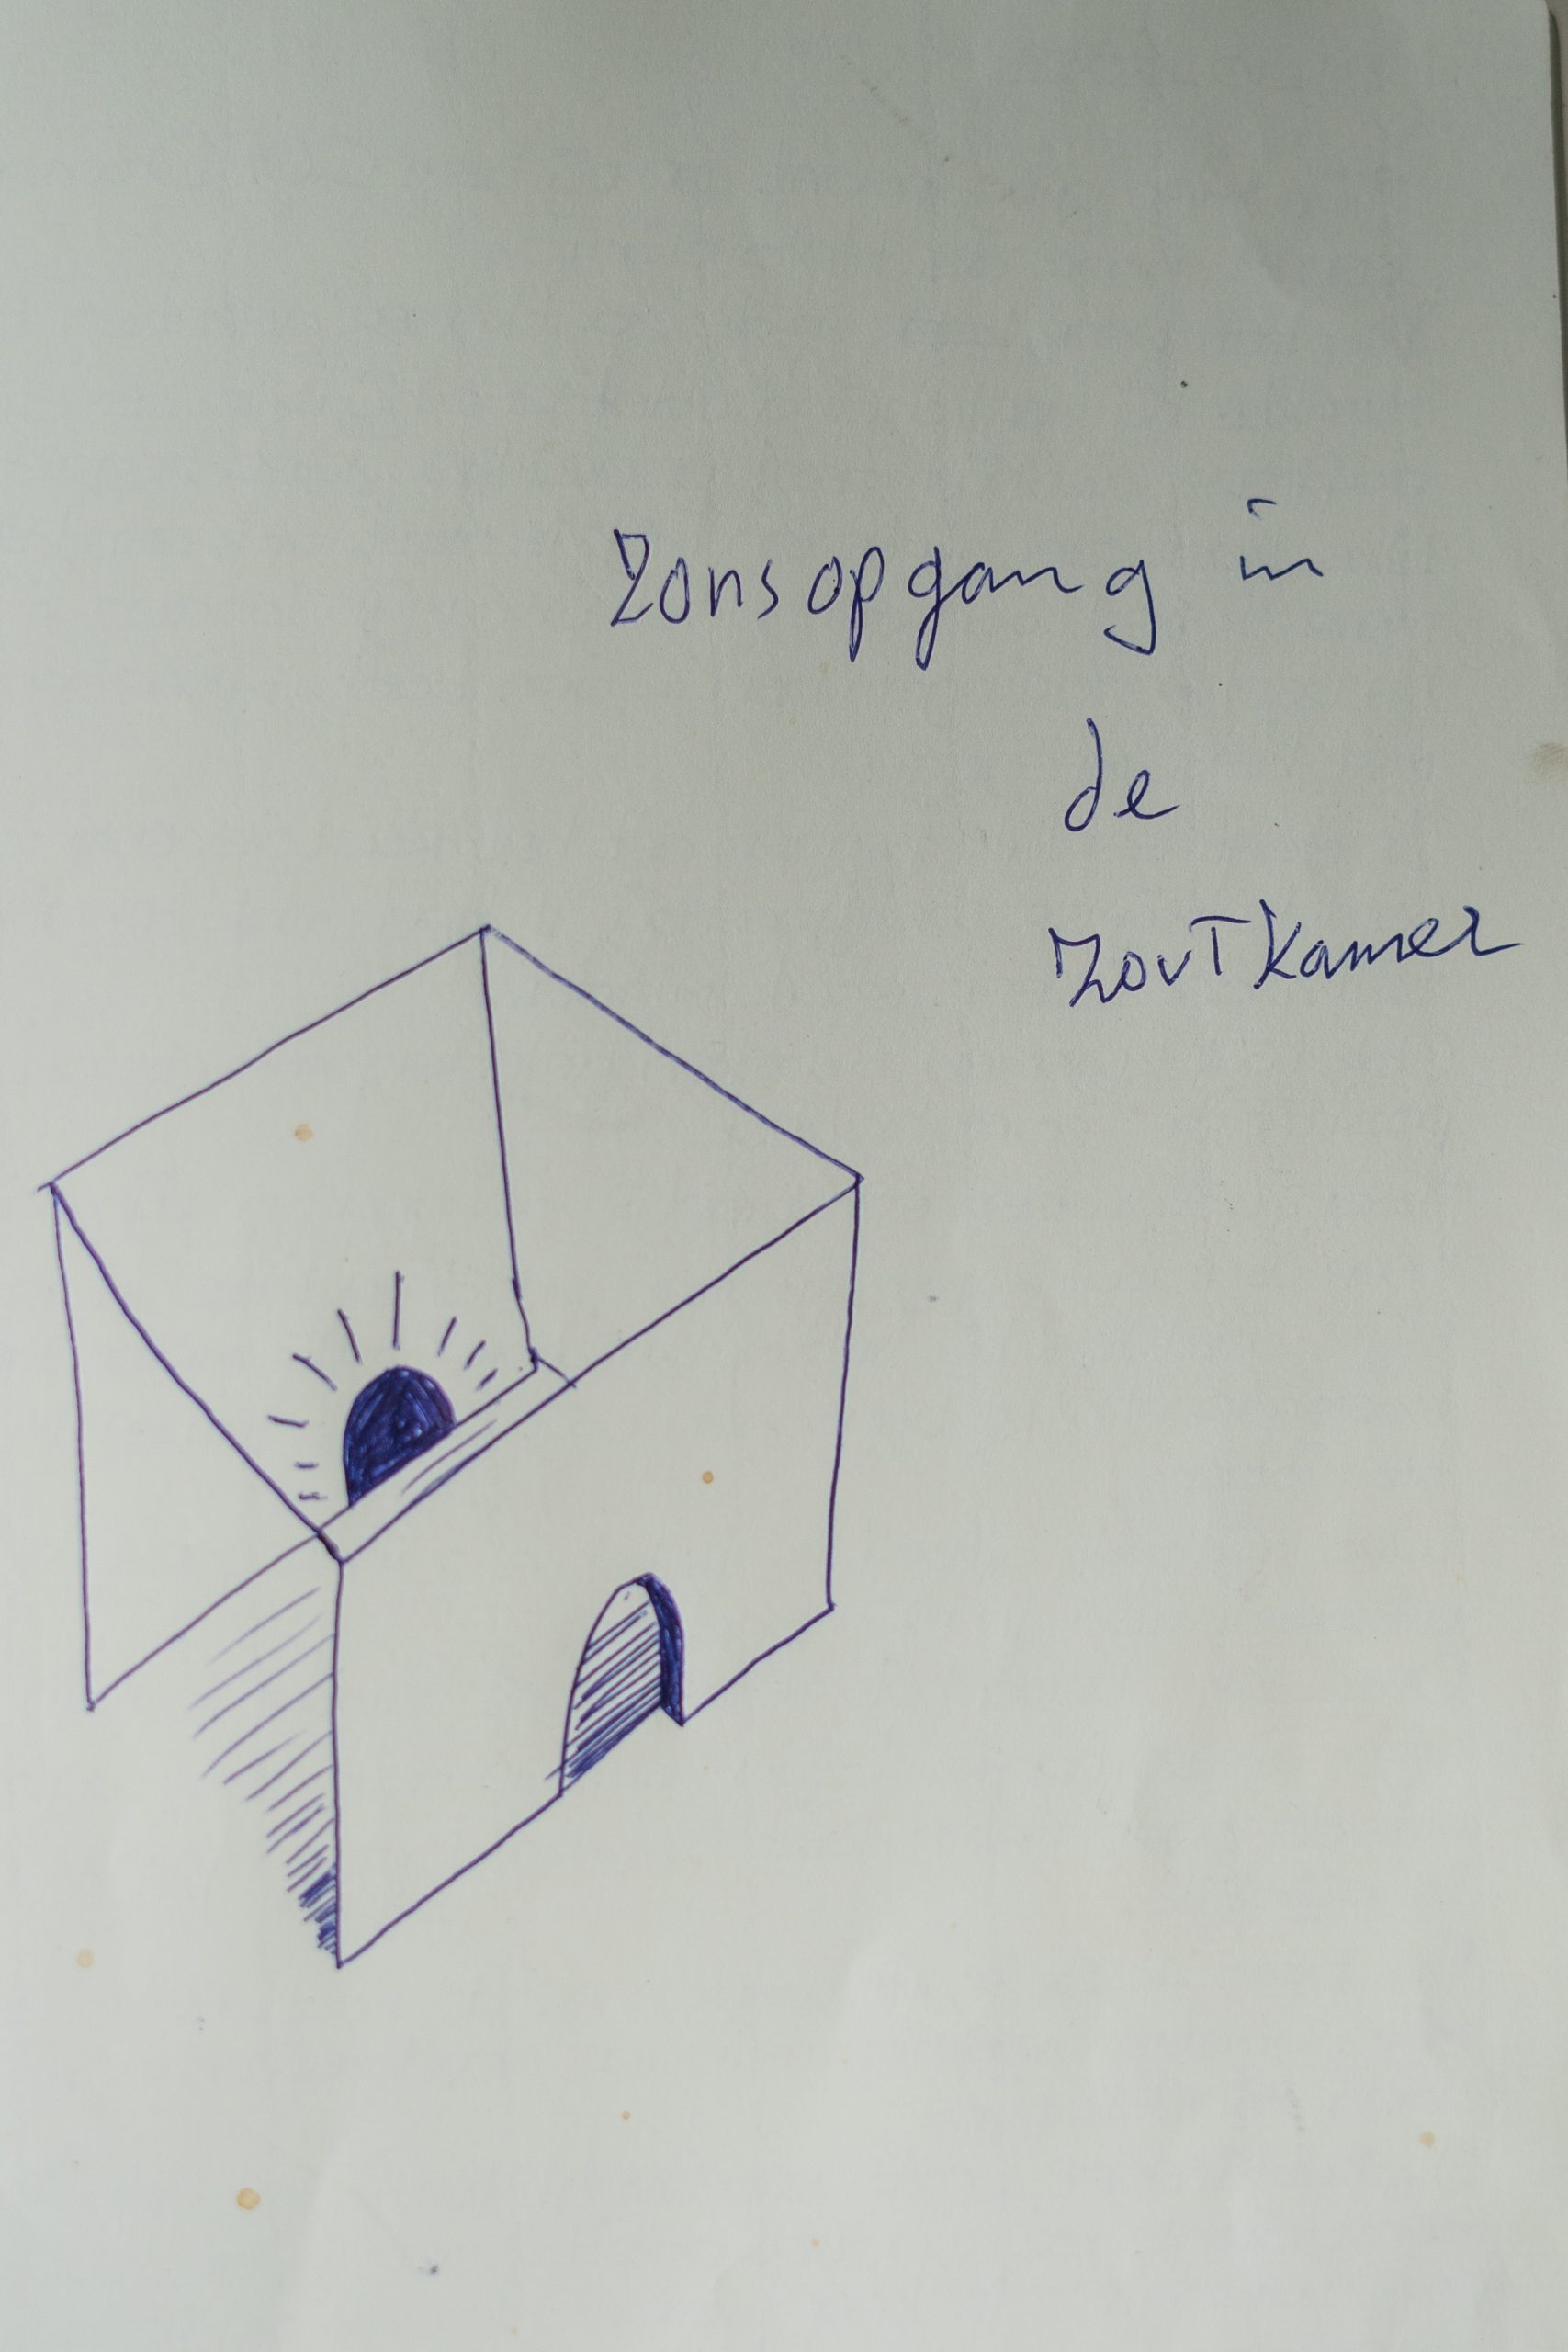 Zonsopgang in
de
ZouTkamer